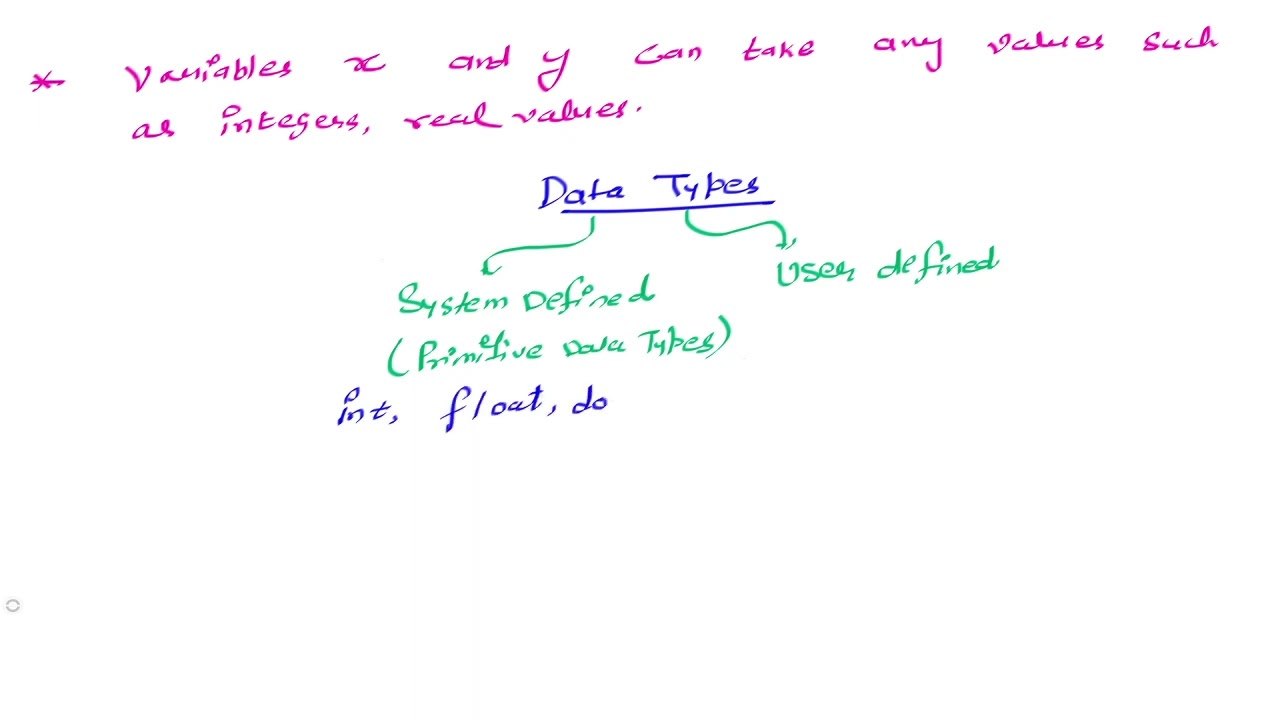 * Variables x and y can take any values such
as integers, real values.
Data Types
System Defined
(Primitive Data Types)
User defined
int, float, do